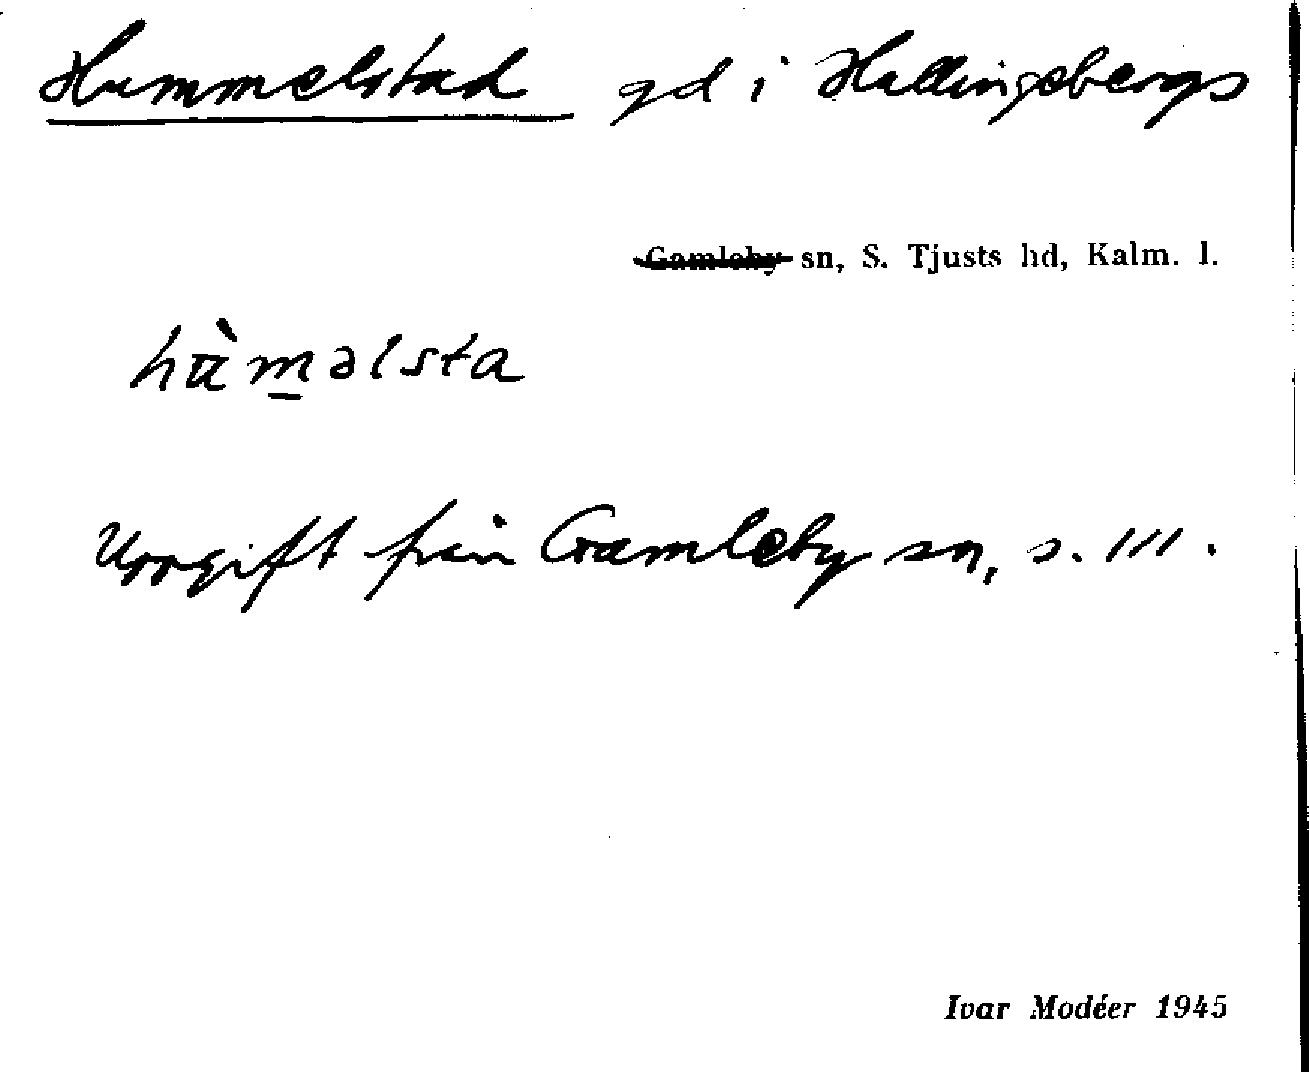 Hummelstad gd i Hallingebergs
Gamleby sn, S. Tjusts hd, Kalm. l.
hù̱məlsta
Uppgift från Gamleby sn, s. 111.
Ivar Modéer 1945